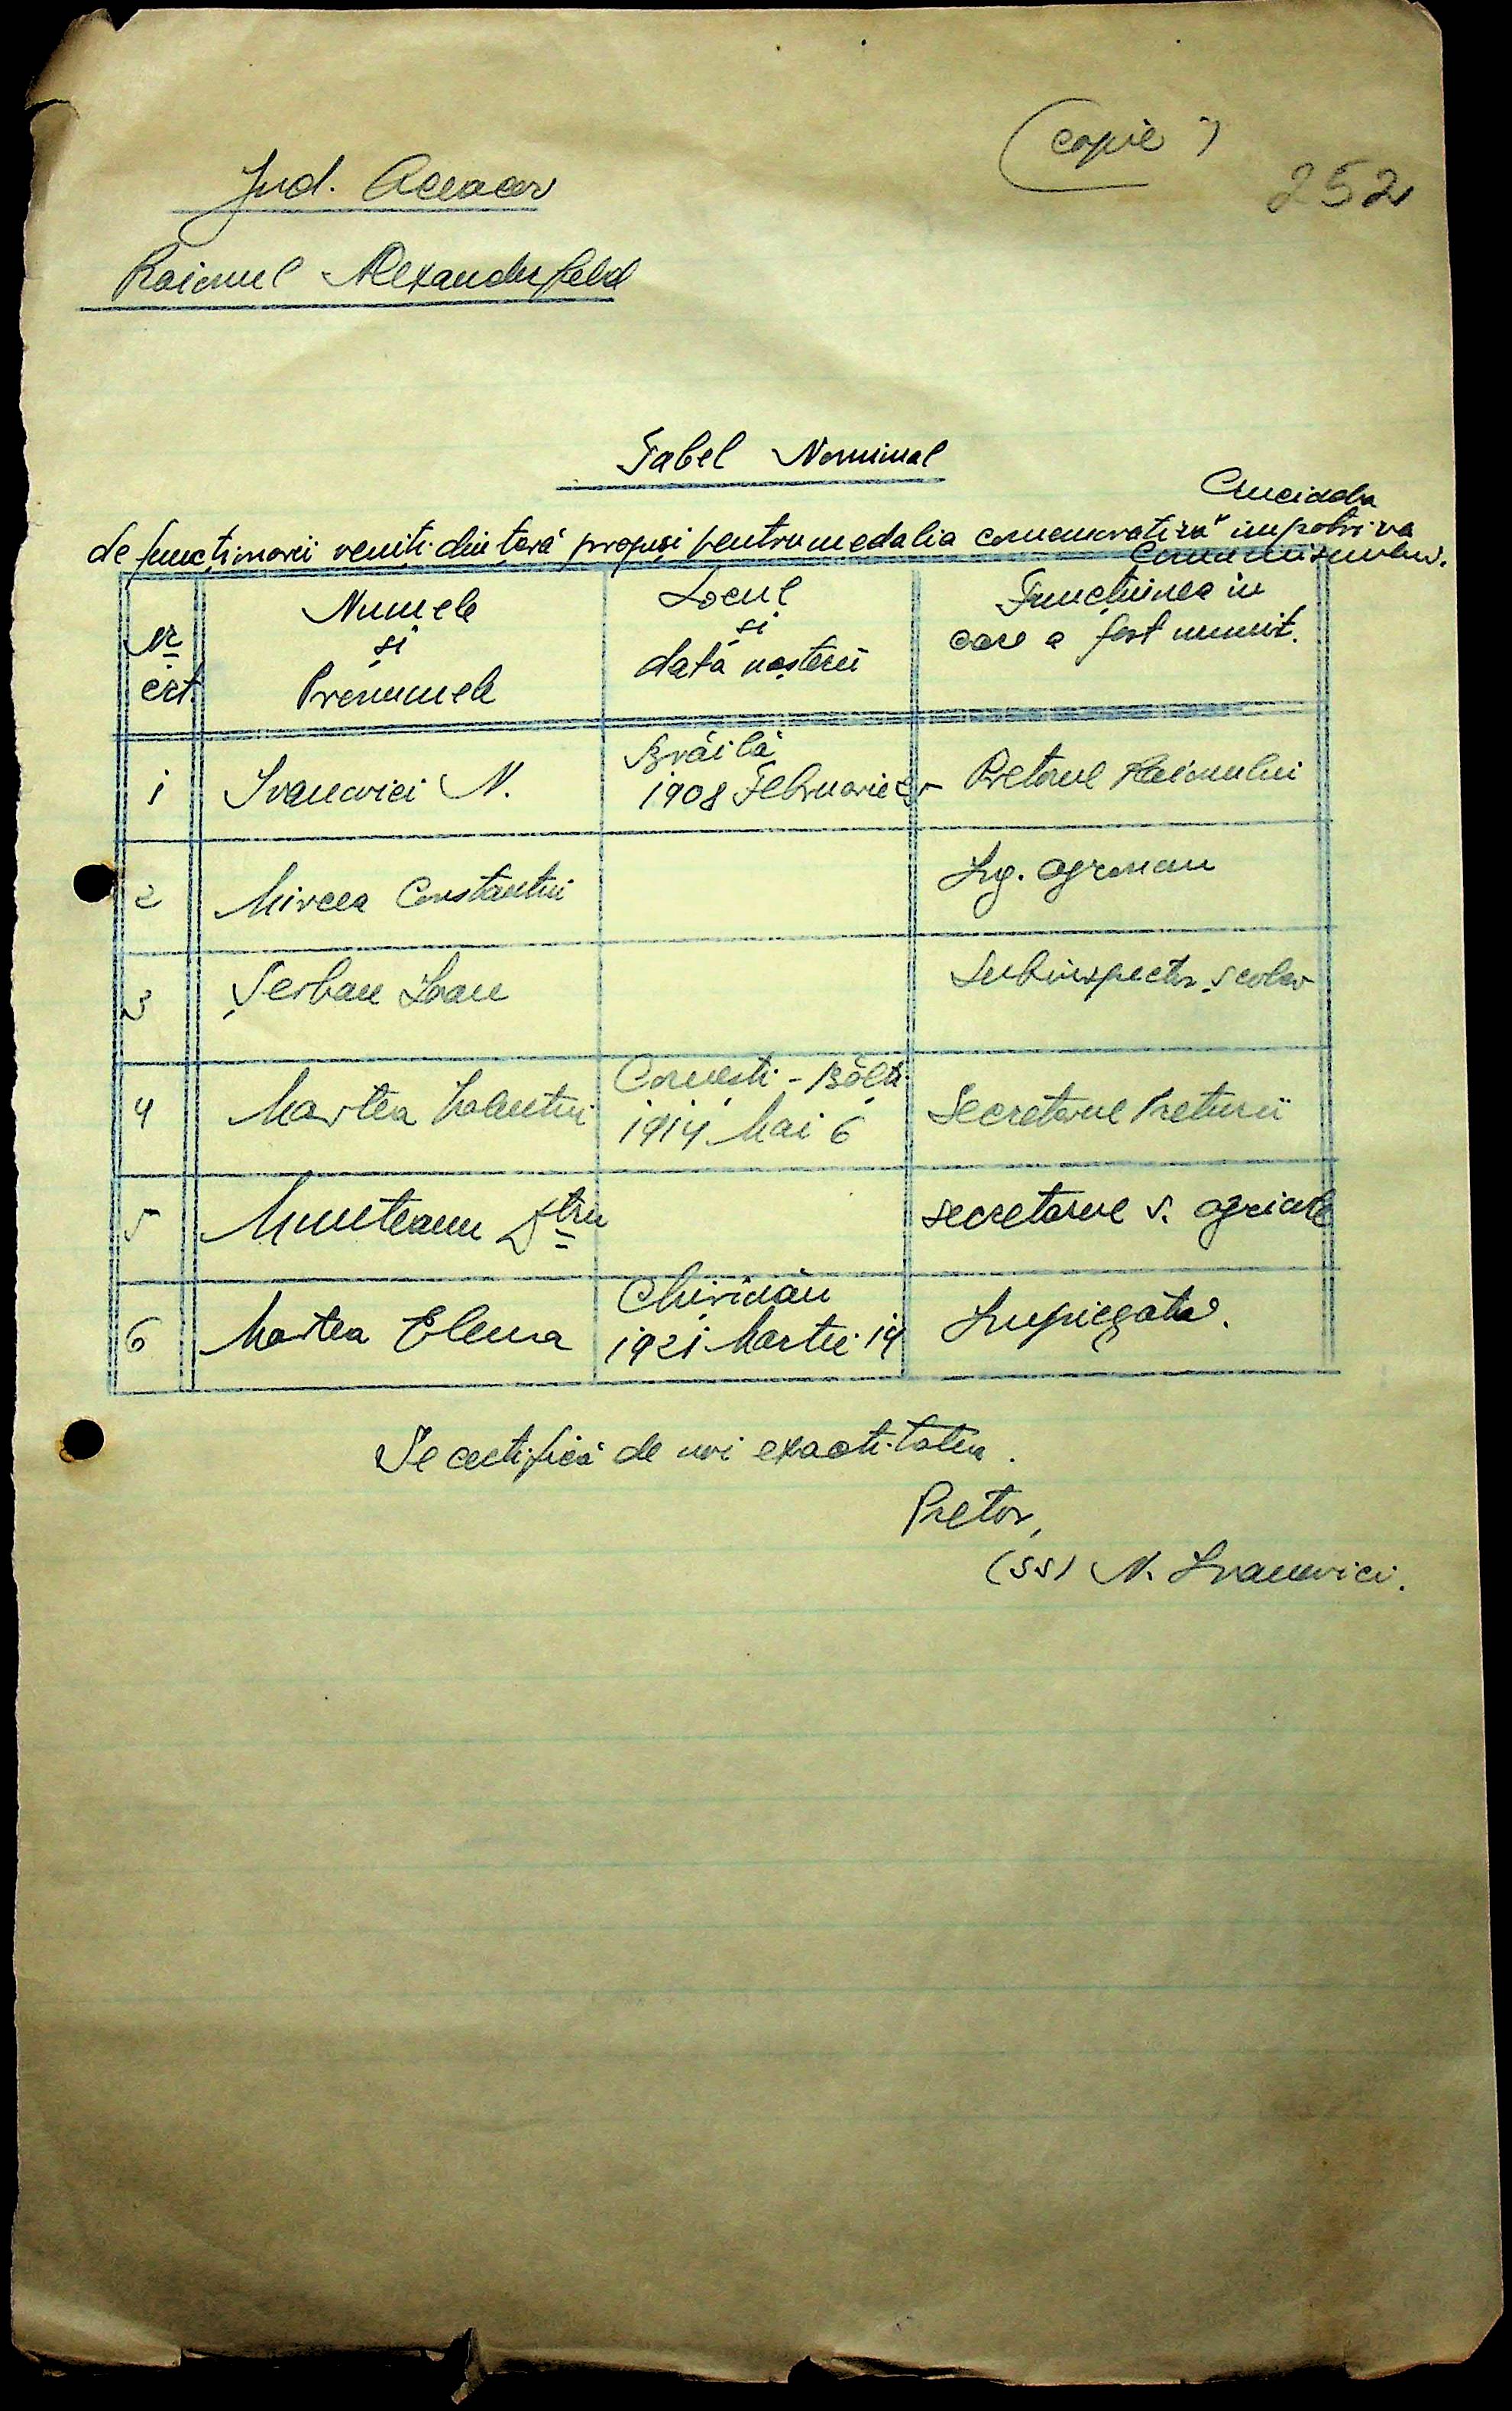 (copie)
252
Jud. Oceacov
Raionul Alexanderfeld
Tabel Nominal
de funcționarii veniți din țară propuși pentru medalia comemorativă Cruciada împotriva
Comunismului.
Nr
crt.
Numele
și
Prenumele
Locul
și
data nașterii
Funcțiunea în
care a fost numit.
1 Ivanovici N. Brăilă
1908 Februarie Pretorul Raionului
2 Mircea Constantin Ing. agronom
3 Șerban Ioan Subinspector școlar
4 Martea Valentin Cornești - Bălți
1914 Mai 6 Secretarul Preturii
5 Munteanu Dtru secretarul s. agricole
6 Martea Elena Chișinău
1921 Martie 14 Impiegată.
Se certifică de noi exactitatea.
Pretor,
(ss) N. Ivanovici.